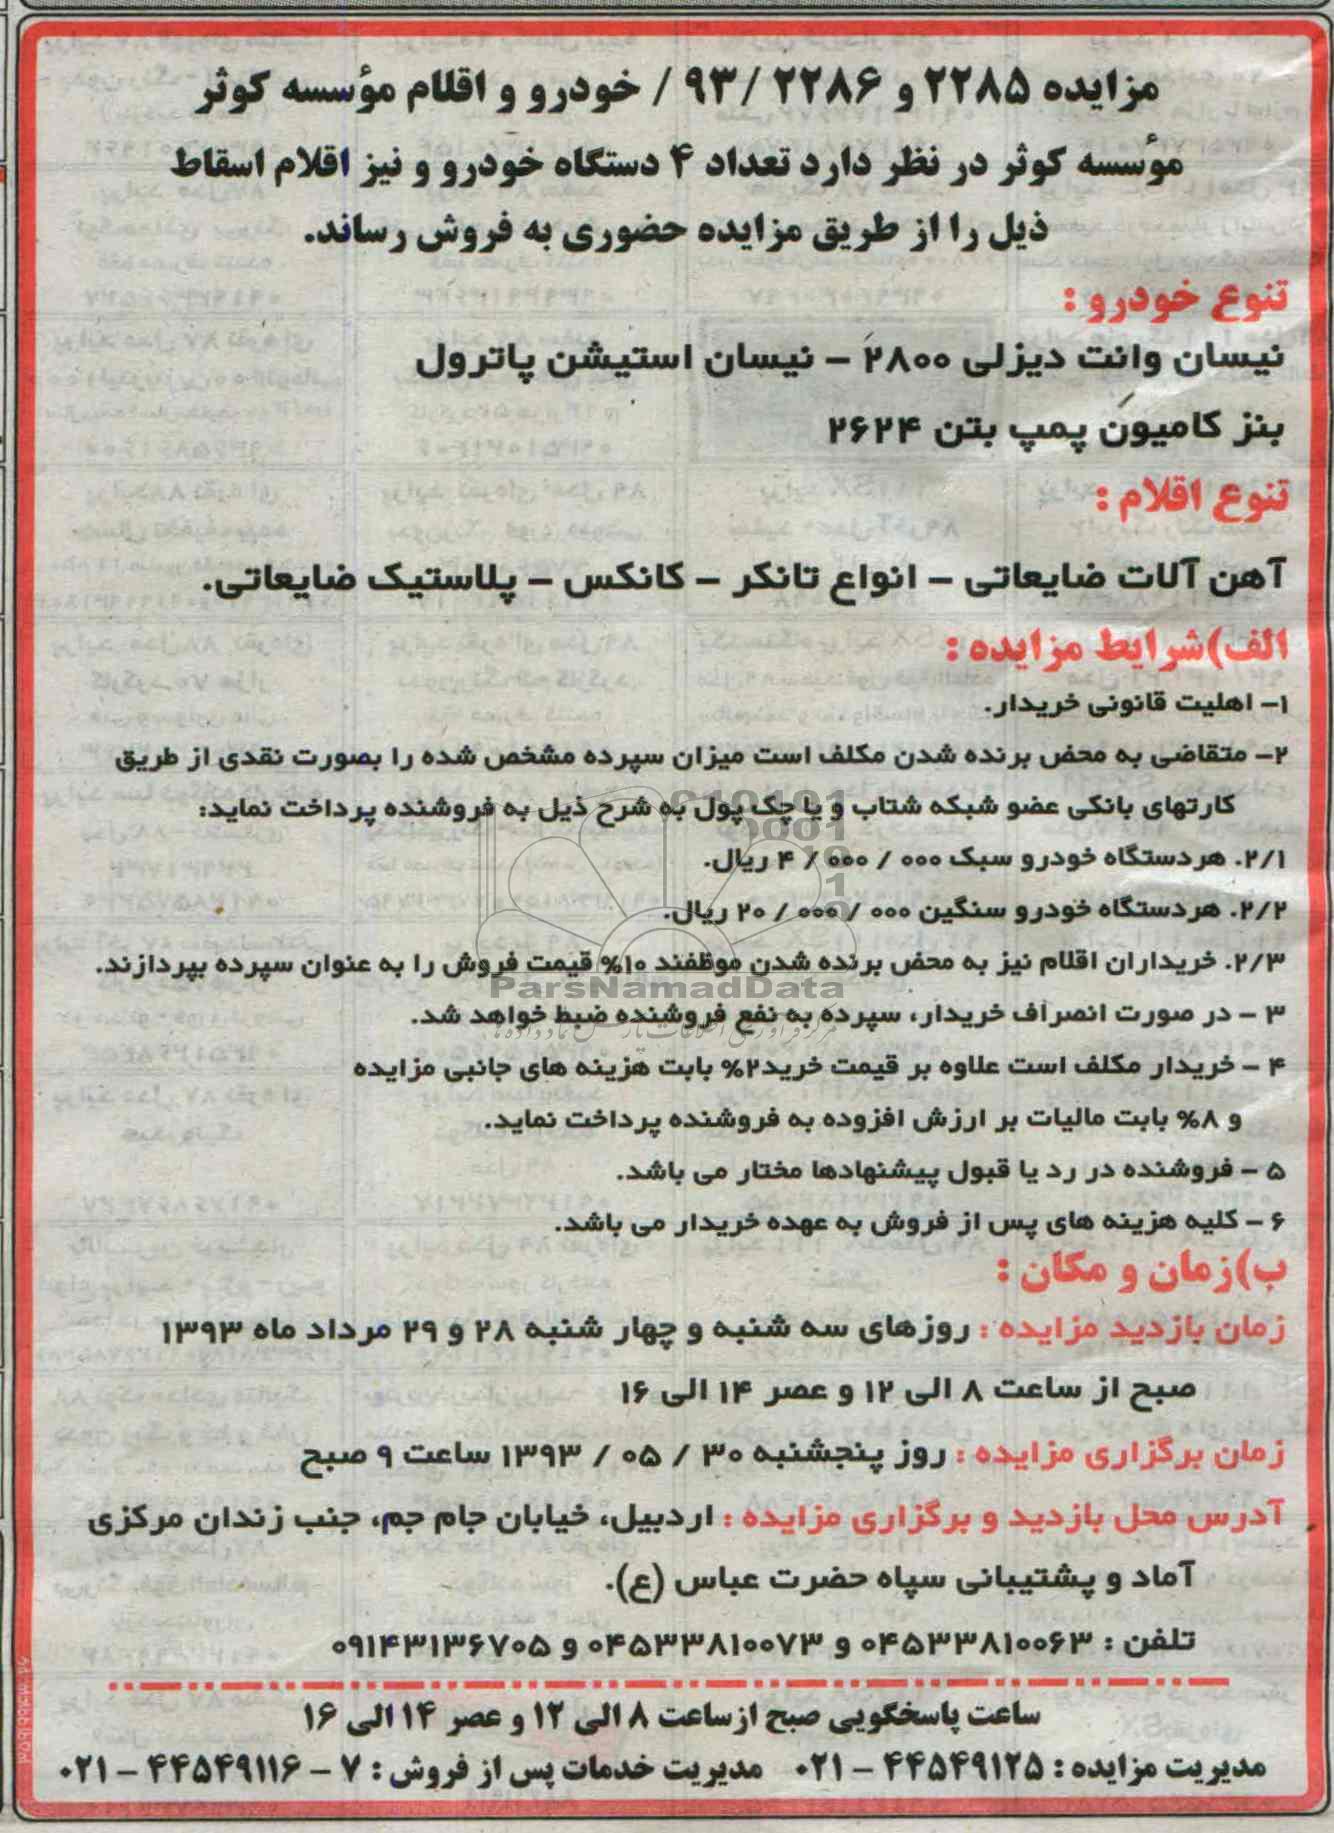 مزایده ۲۲۸۵ و ۲۲۸۶ /۹۳ / خودرو و اقلام مؤسسه کوثر
مؤسسه کوثر در نظر دارد تعداد ۴ دستگاه خودرو و نیز اقلام اسقاط
ذیل را از طریق مزایده حضوری به فروش رساند.
تنوع خودرو :
نیسان وانت دیزلی ۲۸۰۰ – نیسان استیشن پاترول
بنز کامیون پمپ بتن ۲۶۲۴
تنوع اقلام :
آهن آلات ضایعاتی – انواع تانکر – کانکس – پلاستیک ضایعاتی.
الف)شرایط مزایده :
۱– اهلیت قانونی خریدار.
۲– متقاضی به محض برنده شدن مکلف است میزان سپرده مشخص شده را بصورت نقدی از طریق
کارتهای بانکی عضو شبکه شتاب و یا چک پول به شرح ذیل به فروشنده پرداخت نماید:
۲/۱. هردستگاه خودرو سبک ۰۰۰ / ۰۰۰ / ۴ ریال.
۲/۲. هردستگاه خودرو سنگین ۰۰۰ / ۰۰۰ / ۲۰ ریال.
۲/۳. خریداران اقلام نیز به محض برنده شدن موظفند ۱۰% قیمت فروش را به عنوان سپرده بپردازند.
ParsNamadData
۳ – در صورت انصراف خریدار، سپرده به نفع فروشنده ضبط خواهد شد.
۴ – خریدار مکلف است علاوه بر قیمت خرید۲% بابت هزینه های جانبی مزایده
و ۸% بابت مالیات بر ارزش افزوده به فروشنده پرداخت نماید.
۵ – فروشنده در رد یا قبول پیشنهادها مختار می باشد.
۶ – کلیه هزینه های پس از فروش به عهده خریدار می باشد.
ب)زمان و مکان :
زمان بازدید مزایده : روزهای سه شنبه و چهار شنبه ۲۸ و ۲۹ مرداد ماه ۱۳۹۳
صبح از ساعت ۸ الی ۱۲ و عصر ۱۴ الی ۱۶
زمان برگزاری مزایده : روز پنجشنبه ۳۰ / ۰۵ / ۱۳۹۳ ساعت ۹ صبح
آدرس محل بازدید و برگزاری مزایده : اردبیل، خیابان جام جم، جنب زندان مرکزی
آماد و پشتیبانی سپاه حضرت عباس (ع).
تلفن : ۰۴۵۳۳۸۱۰۰۶۳ و ۰۴۵۳۳۸۱۰۰۷۳ و ۰۹۱۴۳۱۳۶۷۰۵
ساعت پاسخگویی صبح ازساعت ۸ الی ۱۲ و عصر ۱۴ الی ۱۶
مدیریت مزایده : ۴۴۵۴۹۱۲۵ – ۰۲۱ مدیریت خدمات پس از فروش : ۷ – ۴۴۵۴۹۱۱۶ – ۰۲۱